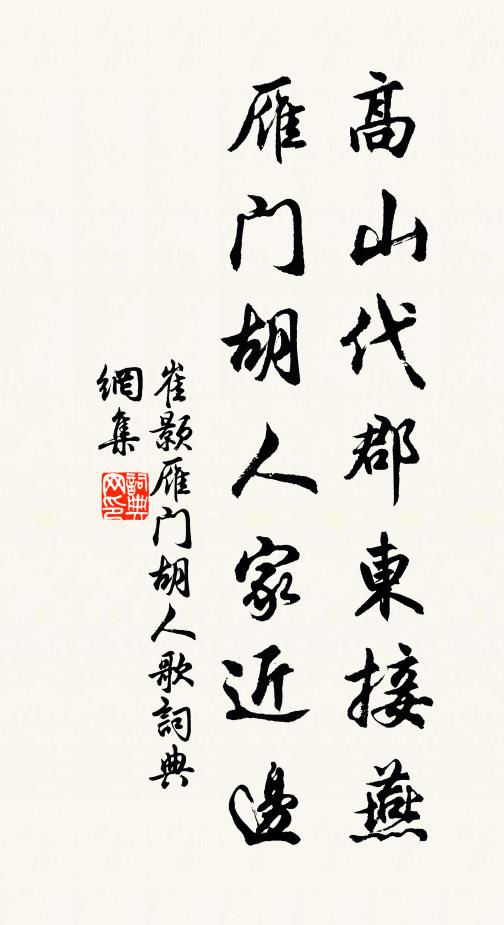 高山代郡東接燕
雁门胡人家近邊
崔颢雁门胡人歌詞典
網集
詞典
网印